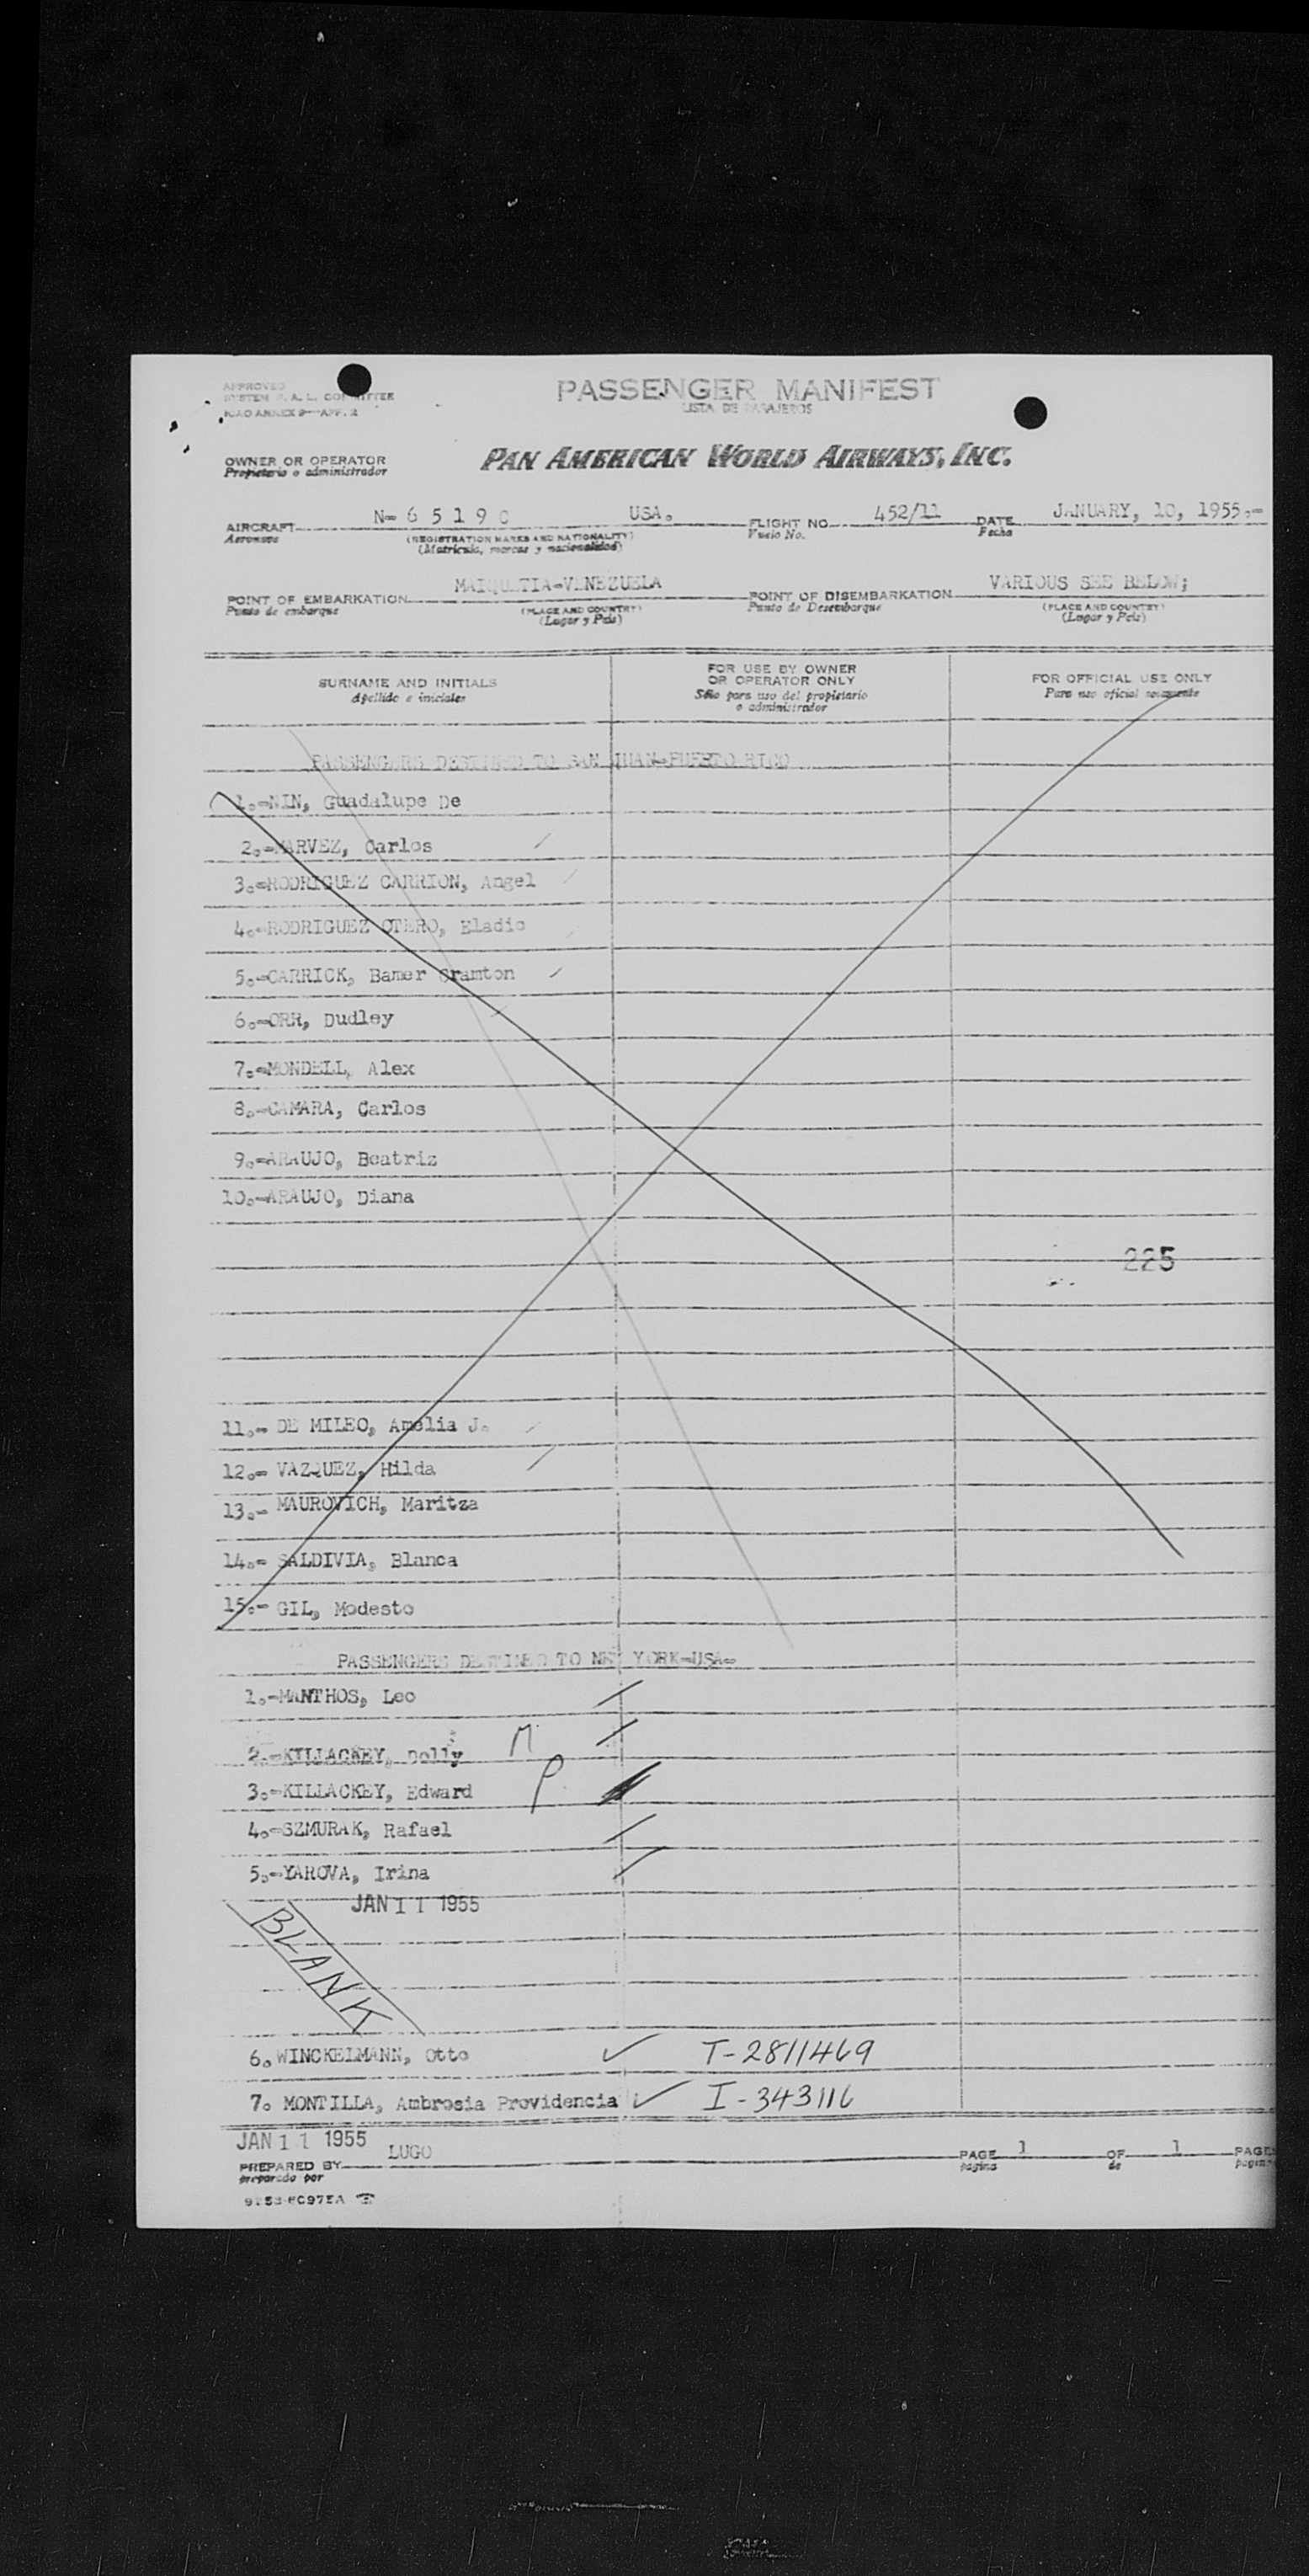 APPROVED
SYSTEM F. A. L. COMMITTEE
ICAO ANNEX 9—APP. 2
PASSENGER MANIFEST
LISTA DE PASAJEROS
OWNER OR OPERATOR
Propietario o administrador
PAN AMERICAN WORLD AIRWAYS, INC.
AIRCRAFT N- 6 5 1 9 0 USA. FLIGHT NO. 452/11 DATE JANUARY, 10, 1955.-
Aeronave (REGISTRATION MARKS AND NATIONALITY) Vuelo No. Fecha
(Matrícula, marcas y nacionalidad)
POINT OF EMBARKATION MAIQUETIA-VENEZUELA POINT OF DISEMBARKATION VARIOUS SEE BELOW;
Punto de embarque (PLACE AND COUNTRY) Punto de Desembarque (PLACE AND COUNTRY)
(Lugar y País) (Lugar y País)
SURNAME AND INITIALS
Apellido e iniciales
FOR USE BY OWNER
OR OPERATOR ONLY
Sólo para uso del propietario
o administrador
FOR OFFICIAL USE ONLY
Para uso oficial solamente
PASSENGERS DESTINED TO SAN JUAN-PUERTO RICO
1.-NIN, Guadalupe De
2.-MARVEZ, Carlos
3.-RODRIGUEZ CARRION, Angel
4.-RODRIGUEZ OTERO, Eladio
5.-CARRICK, Bamer Cramton
6.-ORR, Dudley
7.-MONDELL, Alex
8.-CAMARA, Carlos
9.-ARAUJO, Beatriz
10.-ARAUJO, Diana
225
11.- DE MILEO, Amelia J.
12.- VAZQUEZ, Hilda
13.- MAUROVICH, Maritza
14.- SALDIVIA, Blanca
15.- GIL, Modesto
PASSENGERS DESTINED TO NEW YORK-USA-
1.-MANTHOS, Leo
2.-KILLACKEY, Dolly M
3.-KILLACKEY, Edward P
4.-SZMURAK, Rafael
5.-YAROVA, Irina
JAN 11 1955
BLANK
6. WINCKELMANN, Otto ✓ T-2811469
7. MONTILLA, Ambrosia Providencia ✓ I-343116
JAN 11 1955 LUGO
PREPARED BY PAGE 1 OF 1 PAGE
preparado por página de